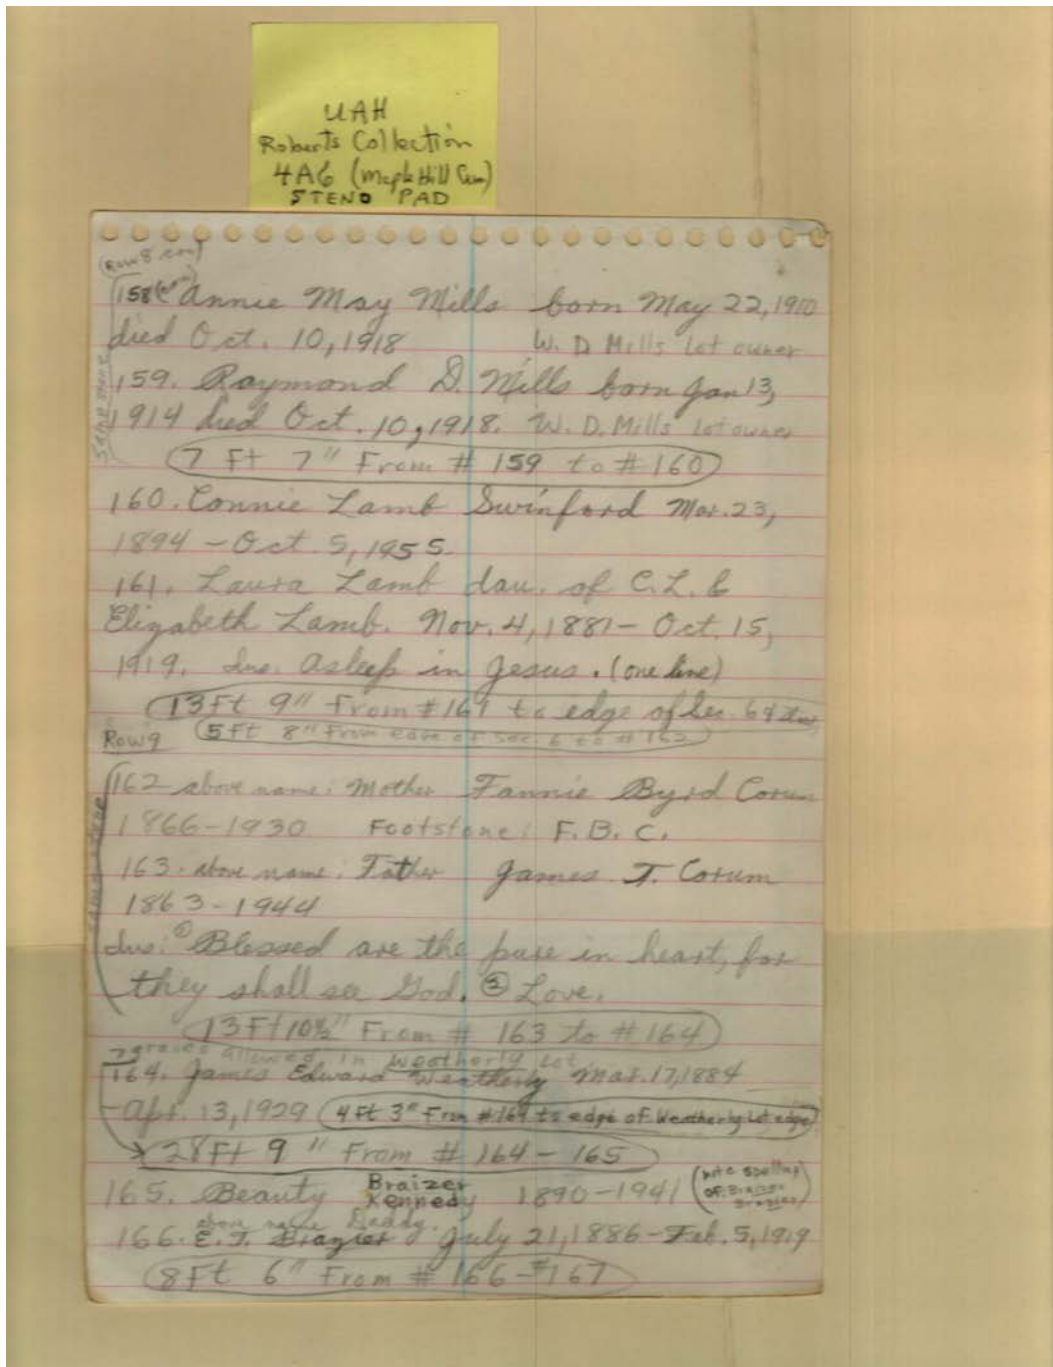 UAH
Roberts Collection
4A6 (Maple Hill Cem)
STENO PAD
(Row 8 con)
158 (con) Annie May Mills born May 22, 1910
died Oct. 10, 1918 W. D Mills Lot owner
159. Raymond D. Mills born Jan 13,
1914 died Oct. 10, 1918. W. D. Mills lot owner
same stone
7 Ft 7" From # 159 to # 160
160. Connie Lamb Swinford Mar. 23,
1894 - Oct. 5, 1955
161. Laura Lamb dau. of C. L. &
Elizabeth Lamb. Nov. 4, 1881 - Oct. 15,
1919. Ins. Asleep in Jesus. (one line)
13 Ft 9" From #161 to edge of Sec. 6
Row 9 5 Ft 8" From edge of Sec. 6 to # 162
162 above name: Mother Fannie Byrd Corum
1866-1930 Footstone: F. B. C.
same stone
163. above name: Father James T. Corum
1863-1944
Ins: ① Blessed are the pure in heart, for
they shall see God. ② Love.
13 Ft 10½" From # 163 to # 164
graves allowed in Weatherly Lot
164. James Edward Weatherly Mar. 17, 1884
- Apr. 13, 1929 4 Ft 3" From #164 to edge of Weatherly Lot edge
28 Ft 9" From # 164 - 165
165. Beauty Braizer Kennedy 1890-1941 (note spelling
of: Braizer
Brazier)
above name Daddy.
166. E. T. Brazier July 21, 1886 - Feb. 5, 1919
8 Ft 6" From # 166 - #167